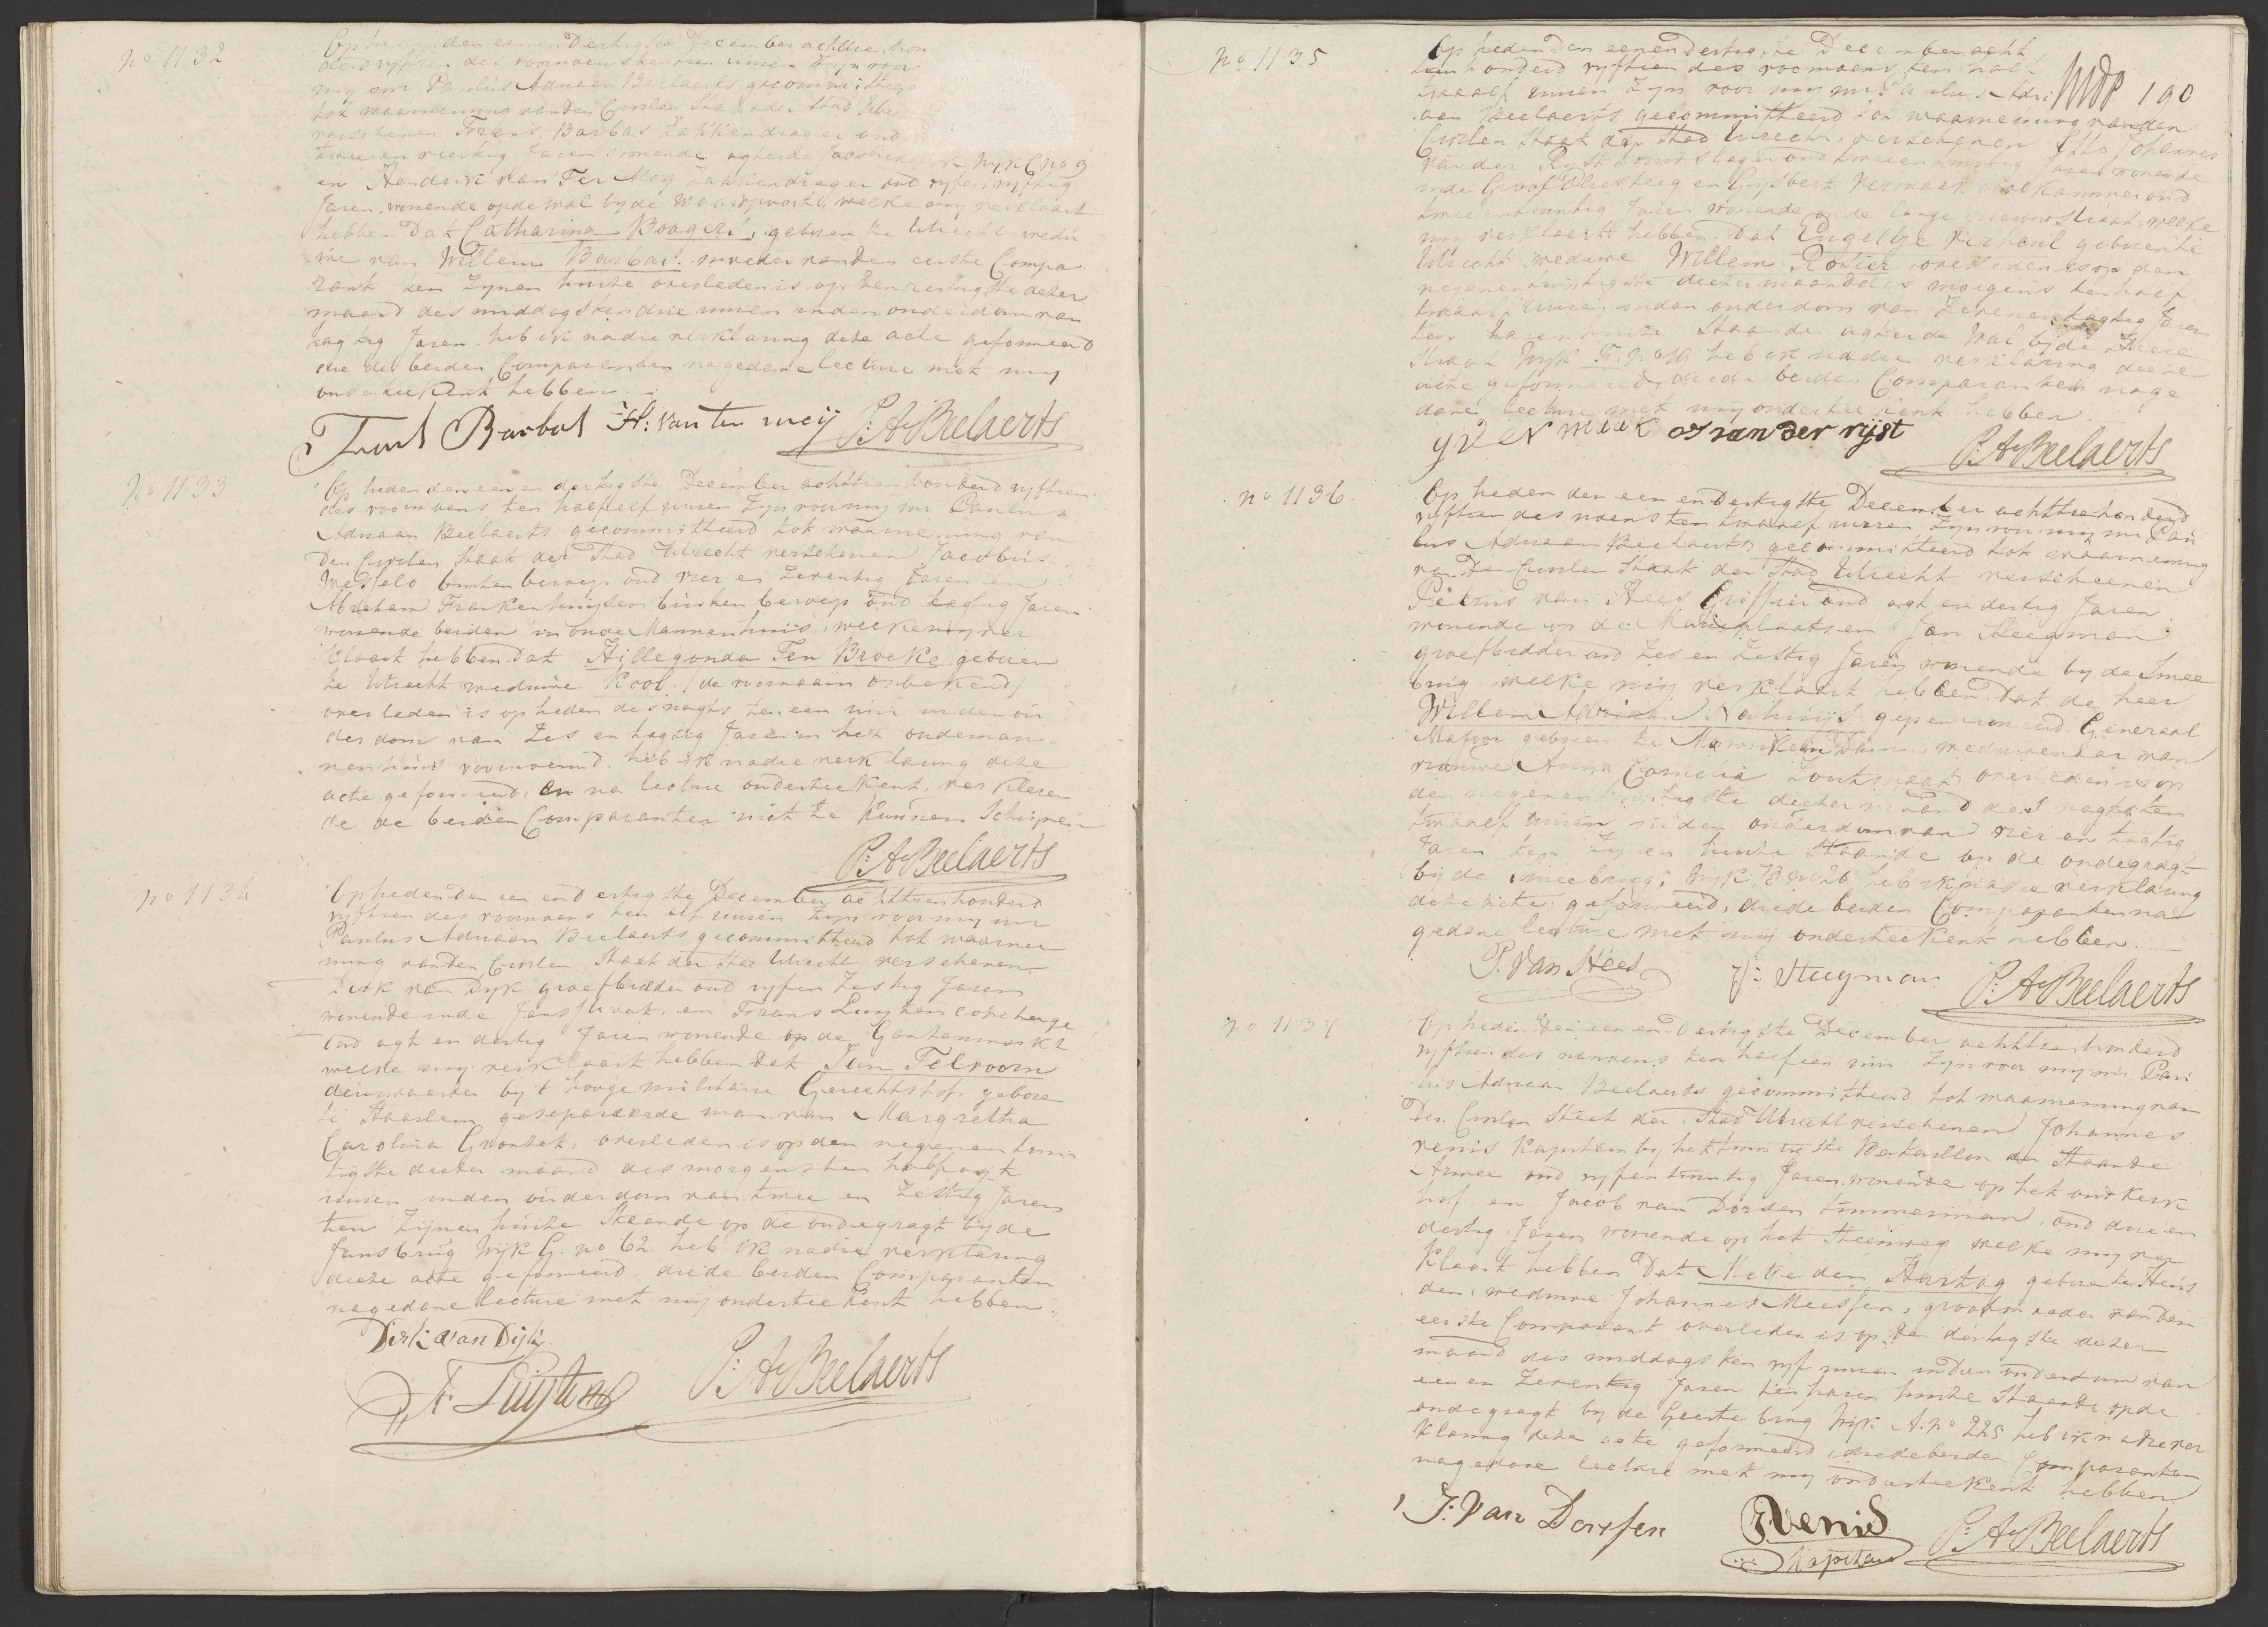 no 1132
Op heden den eenendertigste December achttienhon
derd vyftien des voormiddags ten uuren zyn voor
my mr Paulus Adriaan Beelaerts gecommitteerd
tot waarneming van den Civielen Staat der Stad Utre
verschenen Frans Barbas Zakkendrager oud
twee en veertig Jaren wonende agter de Jacobie Wyk G no 9
en Hendrik van Ter Mey Zakkendrager oud vyf en vyftig
Jaren, wonende op de Wal by de Waardpoort, welke my verklaart
hebben Dat Catharina Boogert, geboren te Utrecht wedu
we van Willem Barbas moeder van den eerste Compa
rant ten zynen huize overleden is op den dertigste dezer
maand des middags ten drie uuren in den ouderdom van
tagtig Jaren. heb ik na die verklaring deze acte geformeerd
die de beiden Comparanten na gedane lecture met my
onderteekent hebben
Frans Barbas H: van ter meij P: A Beelaerts
no 1133
Op heden den eenen dertigste December achttienhonderd vyftien
des voormiddags ten half elf uuren Zyn voor my mr Paulus
Adriaan Beelaerts gecommitteerd tot waarneming van
den Civielen Staat der Stad Utrecht verschenen Jacobus
Wesselo buiten beroep oud vier en Zeventig Jaren en
Abraham Frankenhuijsen buiten beroep oud tagtig Jaren
wonende beiden in oude Mannenhuis, welke my ver
klaart hebben Dat Hillegonda Ten Broeke geboren
te Utrecht weduwe Kool (de voornaam onbekend)
overleden is op heden des nagts ten een uur in den ou
derdom van Zes en tagtig Jaren in het oudeman
nenhuis voornoemd, heb ik na die verklaring deze
acte geformeerd, en na lecture onderteekent, verklaren
de de beiden Comparanten niet te kunnen Schrijven
P: A Beelaerts
no 1134
Op heden den een en dertigste December achttienhonderd
vyftien des voormiddags ten elf uuren Zyn voor my mr
Paulus Adriaan Beelaerts gecommitteerd tot waarnee
ming van den Civielen Staat der Stad Utrecht verschenen
Dirk van Dyk groefbidder oud vyf en Zestig Jaren
wonende in de Jansstraat, en Frans Luyten concherge
oud agt en dertig Jaren wonende op de Ganzenmarkt
welke my verklaart hebben Dat Jan Telvoorn
deurwaarder by 't hooge militaire Gerechtshof, gebore
te Haarlem geseparerde man van Margretha
Carolina Grontek, overleden is op den negenen twin
tigste dezer maand des morgens ten half agt
uuren in den ouderdom van twee en Zestig Jaren
ten Zijnen huize Staande op de oudegragt by de
Jansbrug Wyk G. no 62. heb ik na die verklaring
deeze acte geformeerd, die de beiden Comparanten
na gedane lecture met my onderteekent hebben.
Dirk van Dijk
F. Luijten P: A Beelaerts
no 1135
190
Op heden den eenendertigste December acht
tien honderd vyftien des voormiddags ten half
twaalf uuren Zyn voor my mr Paulus Adri
aan Beelaerts gecommitteerd tot waarneming van den
Civielen Staat der Stad Utrecht, verschenen Otto Johannes
van der Ryst Touwslager oud twee en twintig Jaren wonende
in de Groof Vliesteeg en Gysbert Vermeek Wolkammer oud
twee en twintig Jaren wonende in de lange nieuwstraat welke
my verklaart hebben. Dat Engeltje Verheul geboren te
Utrecht weduwe Willem Rosier overleden is op den
negenentwintigste dezer maand des morgens ten half
twaalf uuren in den ouderdom van Zevenen tagtig Jaren
ten haren huize Staande agter de Wal by de Heere
Straat Wyk heb ik na die verklaring deeze
acte geformeerd, die de beiden Comparanten na ge
dane lecture met my onderteekent hebben.
g vermeek oj van der rijst P: A Beelaerts
no 1136
Op heden den een en dertigste December achttienhonderd
vyftien des noens ten twaalf uuren Zyn voor my mr Pau
lus Adriaan Beelaerts gecommitteerd tot waarneming
van den Civielen Staat der Stad Utrecht verscheenen
Petrus van Hees Griffier oud agt en dertig Jaren
wonende op de Mariaplaats en Jan Steegman
groefbidder oud Zes en Zestig Jaren wonende by de Smee
brug welke my verklaart hebben Dat de heer
Willem Adriaan Nahuijs gepensioneerd Generaal
Majoor geboren te Monnikendam, weduwenaar van
vrouwe Anna Cornelia overleden is op
den negenentwintigste dezer maand des nagts ten
twaalf uuren in den ouderdom van vier en tagtig
Jaren ten Zynen huize Staande op de oudegragt
by de Smeebrug, Wyk B no 26 heb ik na die verklaring
deze acte geformeerd, die de beiden Comparanten na
gedane lecture met my onderteekent hebben.
P. van Hees J: Steegman P: A Beelaerts
no 1137
Op heden den een en dertigste December achttienhonderd
vyftien des namiddags ten half een uur Zyn voor my mr Pau
lus Adriaan Beelaerts gecommitteerd tot waarneming van
den Civielen Staat der Stad Utrecht verschenen Johannes
Venis Kapitein by het twintigste Bataillon der Staande
Armee oud vyf en twintig Jaren wonende op het oud Kerk
hof en Jacob van Dorsen timmerman, oud drie en
dertig Jaren wonende op het Steenweg welke my ver
klaart hebben Dat Metje den Hartog geboren te Heus
den, weduwe Johannes Meessen, grootmoeder van den
eerste Comparant overleden is op den dertigste dezer
maand des middags ten vyf uuren in den ouderdom van
een en Zeventig Jaren ten haren huize Staande op de
oudegragt by de Geerte brug Wyk A. no 225 heb ik na die ver
klaring deze acte geformeerd, die de beiden Comparanten
na gedane lecture met my onderteekent hebben
J: van Dorssen JVenis P: A Beelaerts
Kapitein